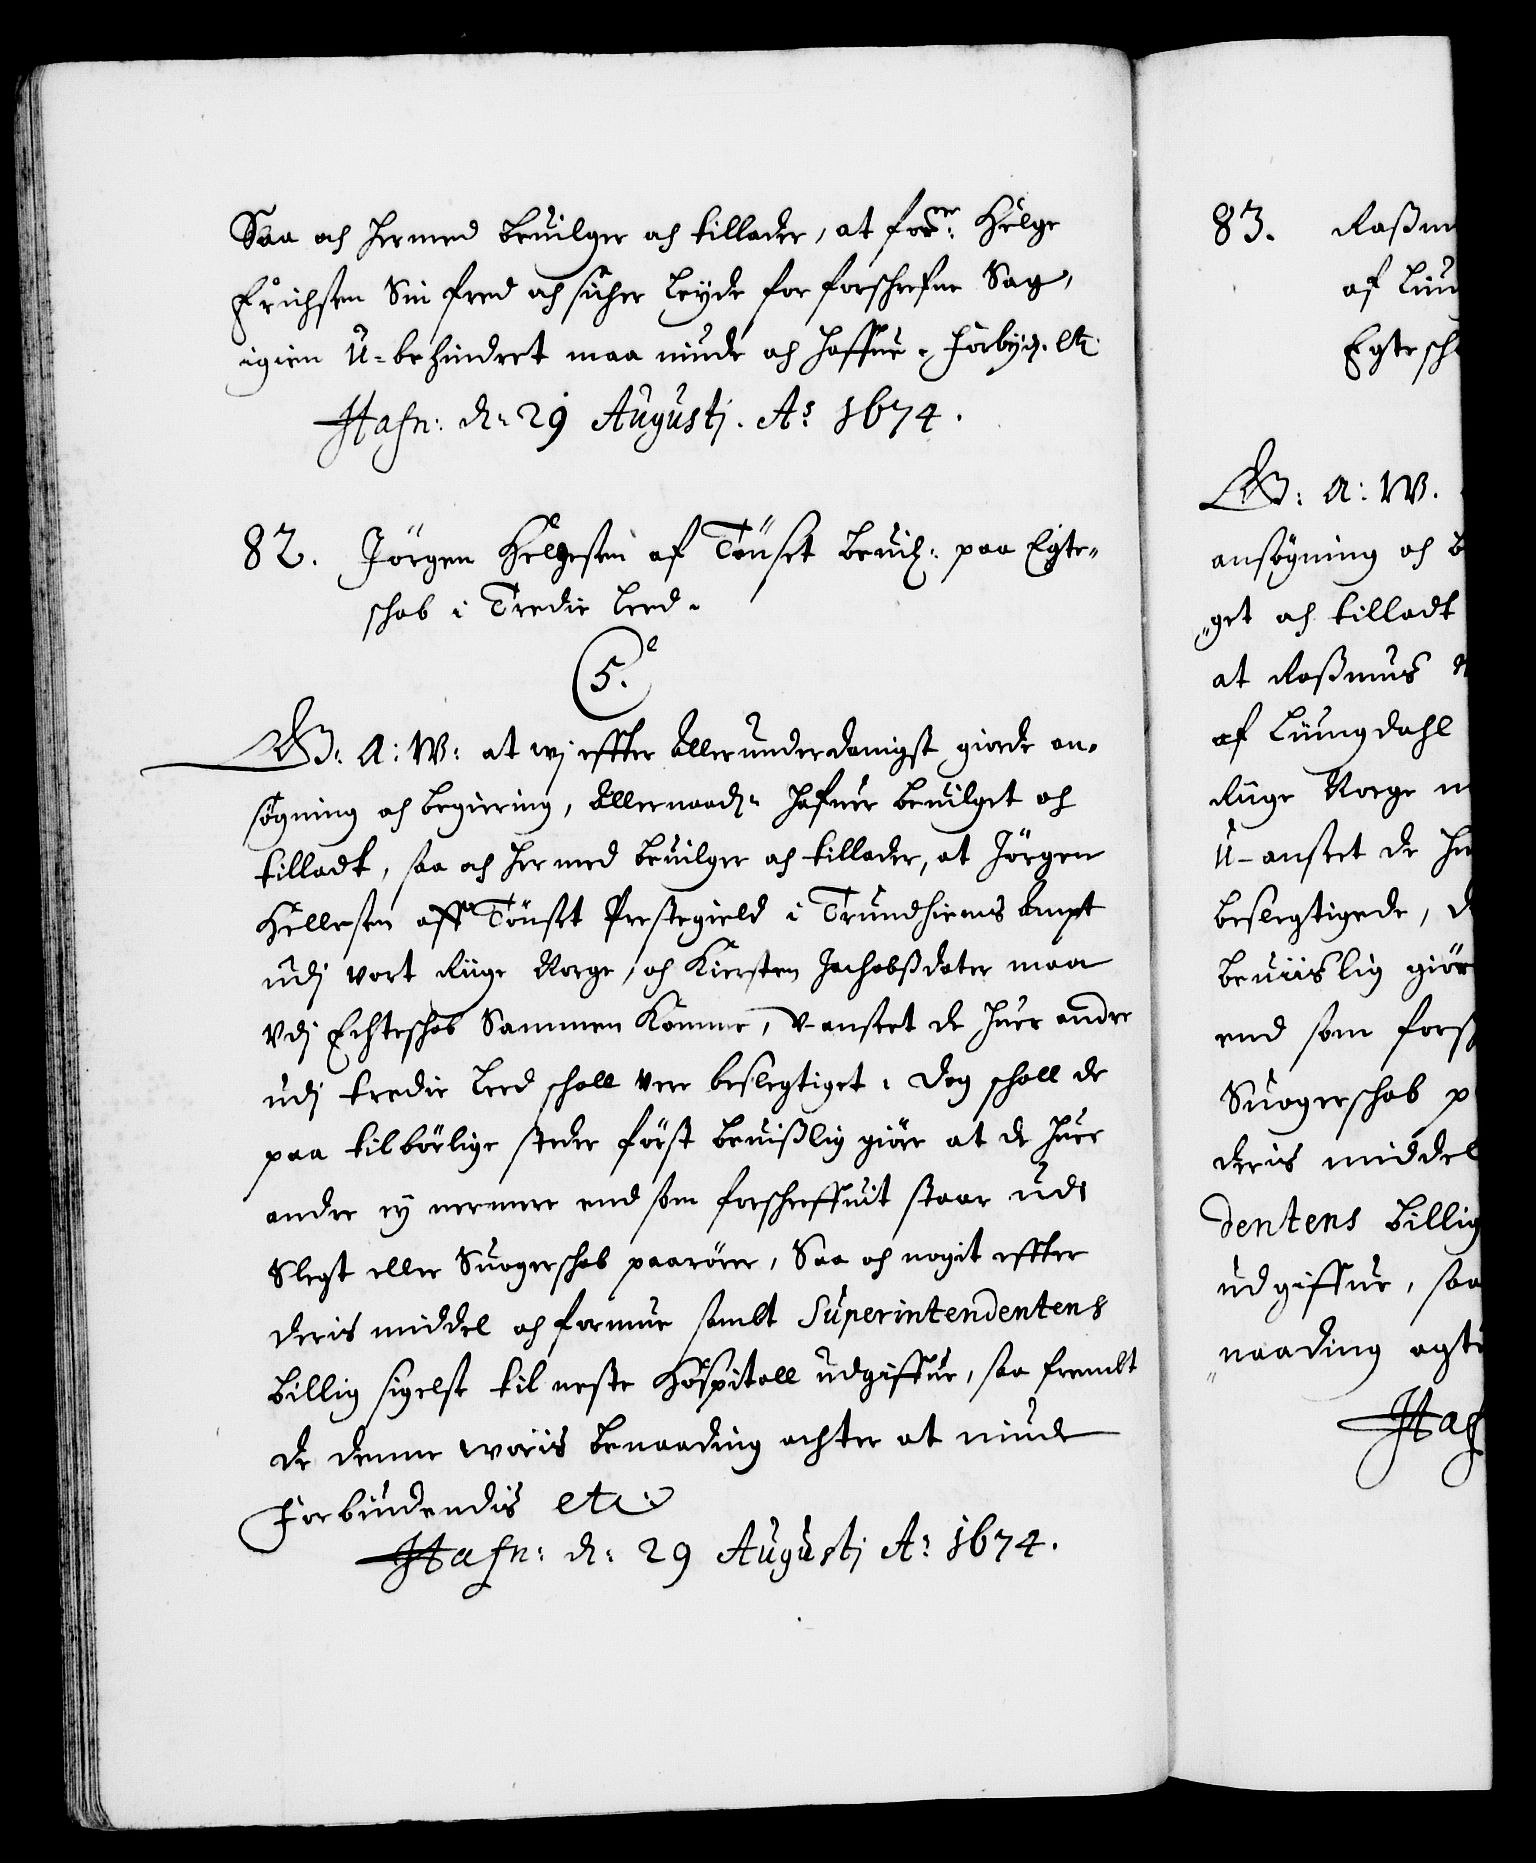 Saa och hermed beuilger och tillader, at forne: Helge
Erichsen Sin fred och sicher Leyde for forschrefne Sag,
igien U-behindret maa niude och haffue. Forbiud. etc.
Hafn: d: 29 Augustj. Ao 1674.
82. Jörgen Helgesen af Tönset beuil: paa Egte-
schab i Tredie Leed.
5.
G: A: W: at wj effter allerunderdanigst giorde an-
søgning och begiering, allernaad: hafuer beuilget och
tilladt, saa och hermed beuilger och tillader, at Jörgen
Hellesen aff Tönset Prestegield i Trundhiems ampt
udj vort Riige Norge, och Kiersten Jachobsdater maa
Vdj Echteschab Sammen Komme, V-anseet de huer andre
udj tredie Leed schall vere beslegtiget. Dog schall de
paa tilbörlige steder först beuißlig giöre at de huer
andre ey nermere end som forschreffuit staar udi
Slegt eller Suogerschab paarörer, Saa och nogit effter
deris middel och formue sambt Superintendentens
billig sigelse til neste Hospitall udgiffue, saa frembt
de denne woris benaading achter at niude
Forbiudendis etc:
Hafn: d: 29 Augustj Ao 1674.
83. Raßm
af Liu
Egtesch
G: A: W.
ansøgning och b
get och tilladt
at Raßmus
af Liungdahl
Riige Norge m
U-anseet de hu
beslegtigede, d
beuiislig giör
end som forsch
Suogerschab p
deris middel
dentens billig
udgiffue, saa
naading agt
Haf